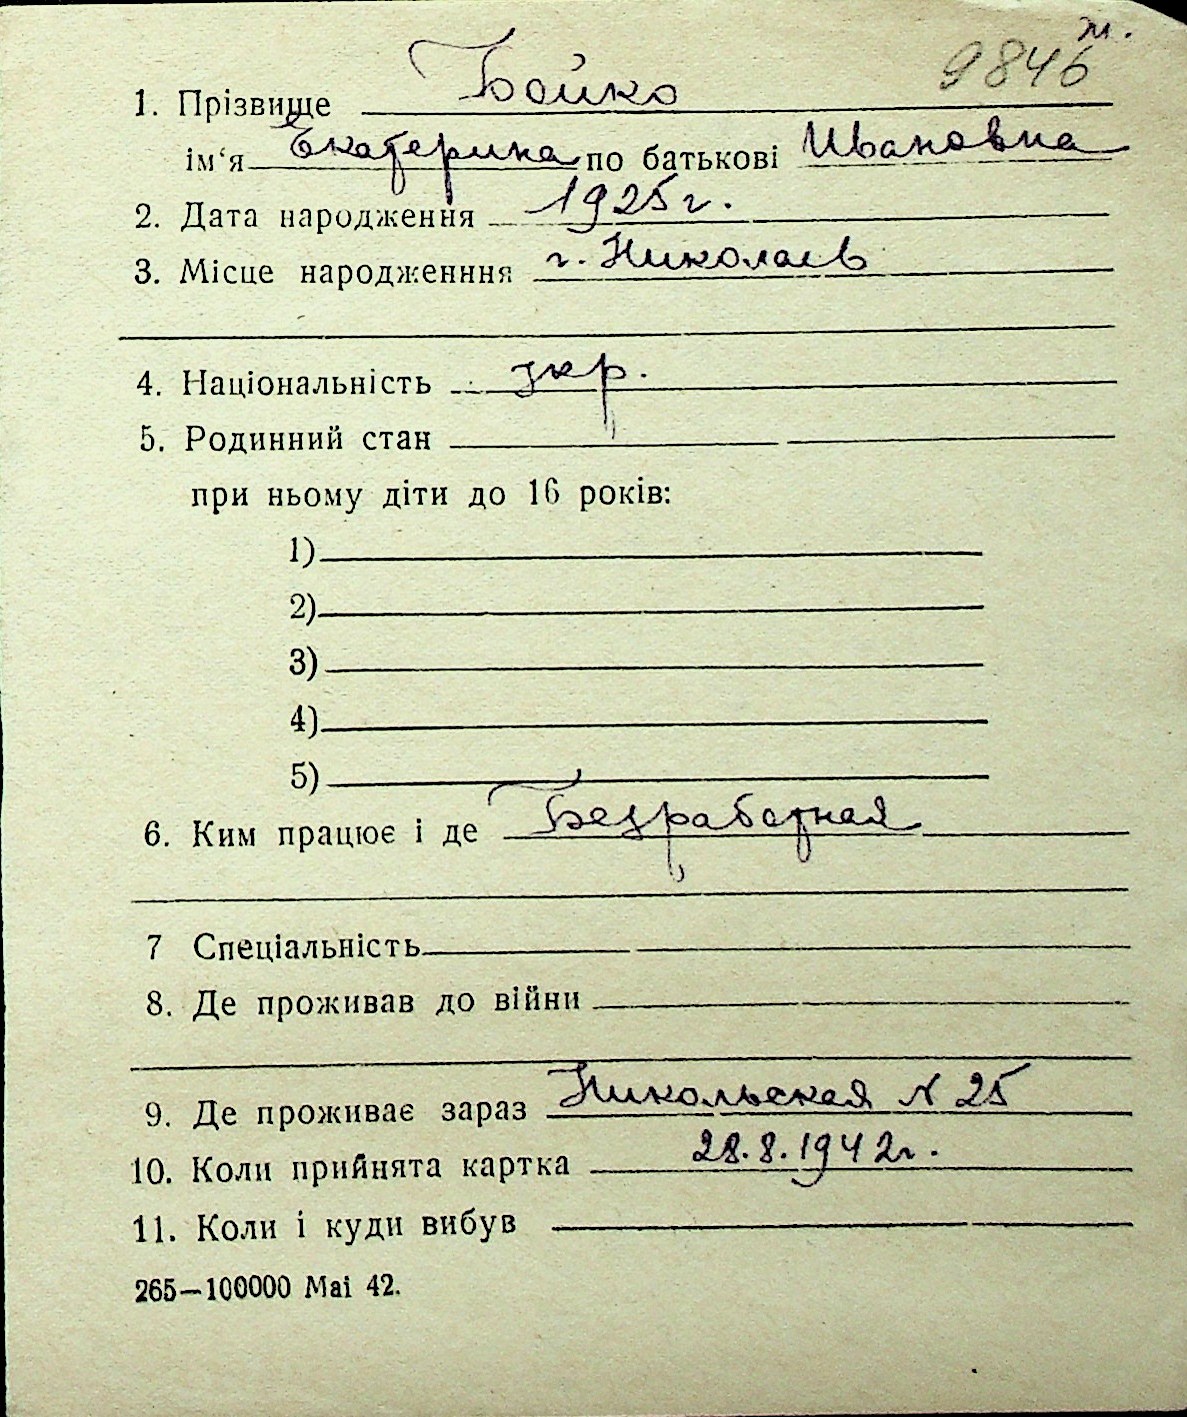 ж.
9846
1. Прізвище Бойко
ім‘я Екатерина по батькові Ивановна
2. Дата народження 1925 г.
3. Місце народженння г. Николаев
4. Національність укр.
5. Родинний стан
при ньому діти до 16 років:
1)
2)
3)
4)
5)
6. Ким працює і де Безработная
7 Спеціальність
8. Де проживав до війни
9. Де проживає зараз Никольская N 25
10. Коли прийнята картка 28.8.1942г.
11. Коли і куди вибув
265—100000 Mai 42.